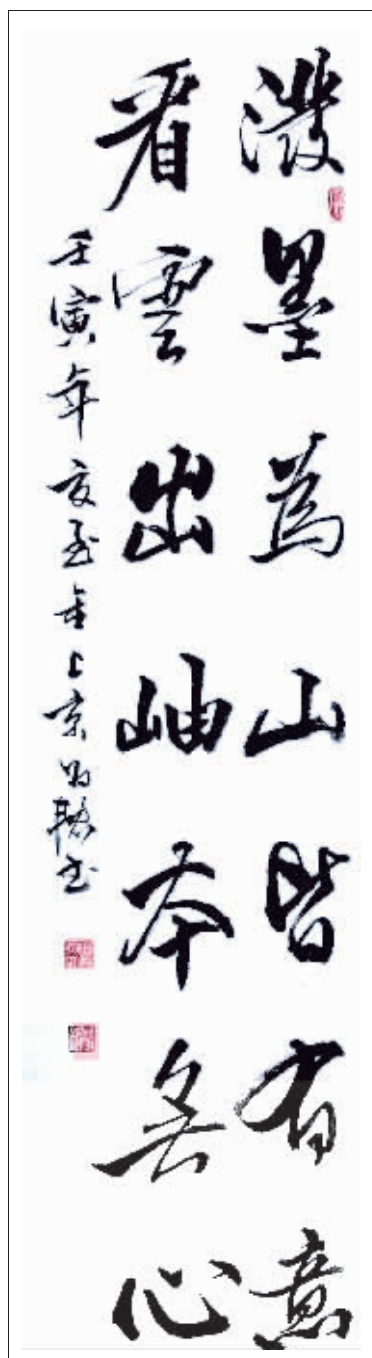 潑墨為山皆有意
看雲出岫本無心
壬寅年夏至上京書